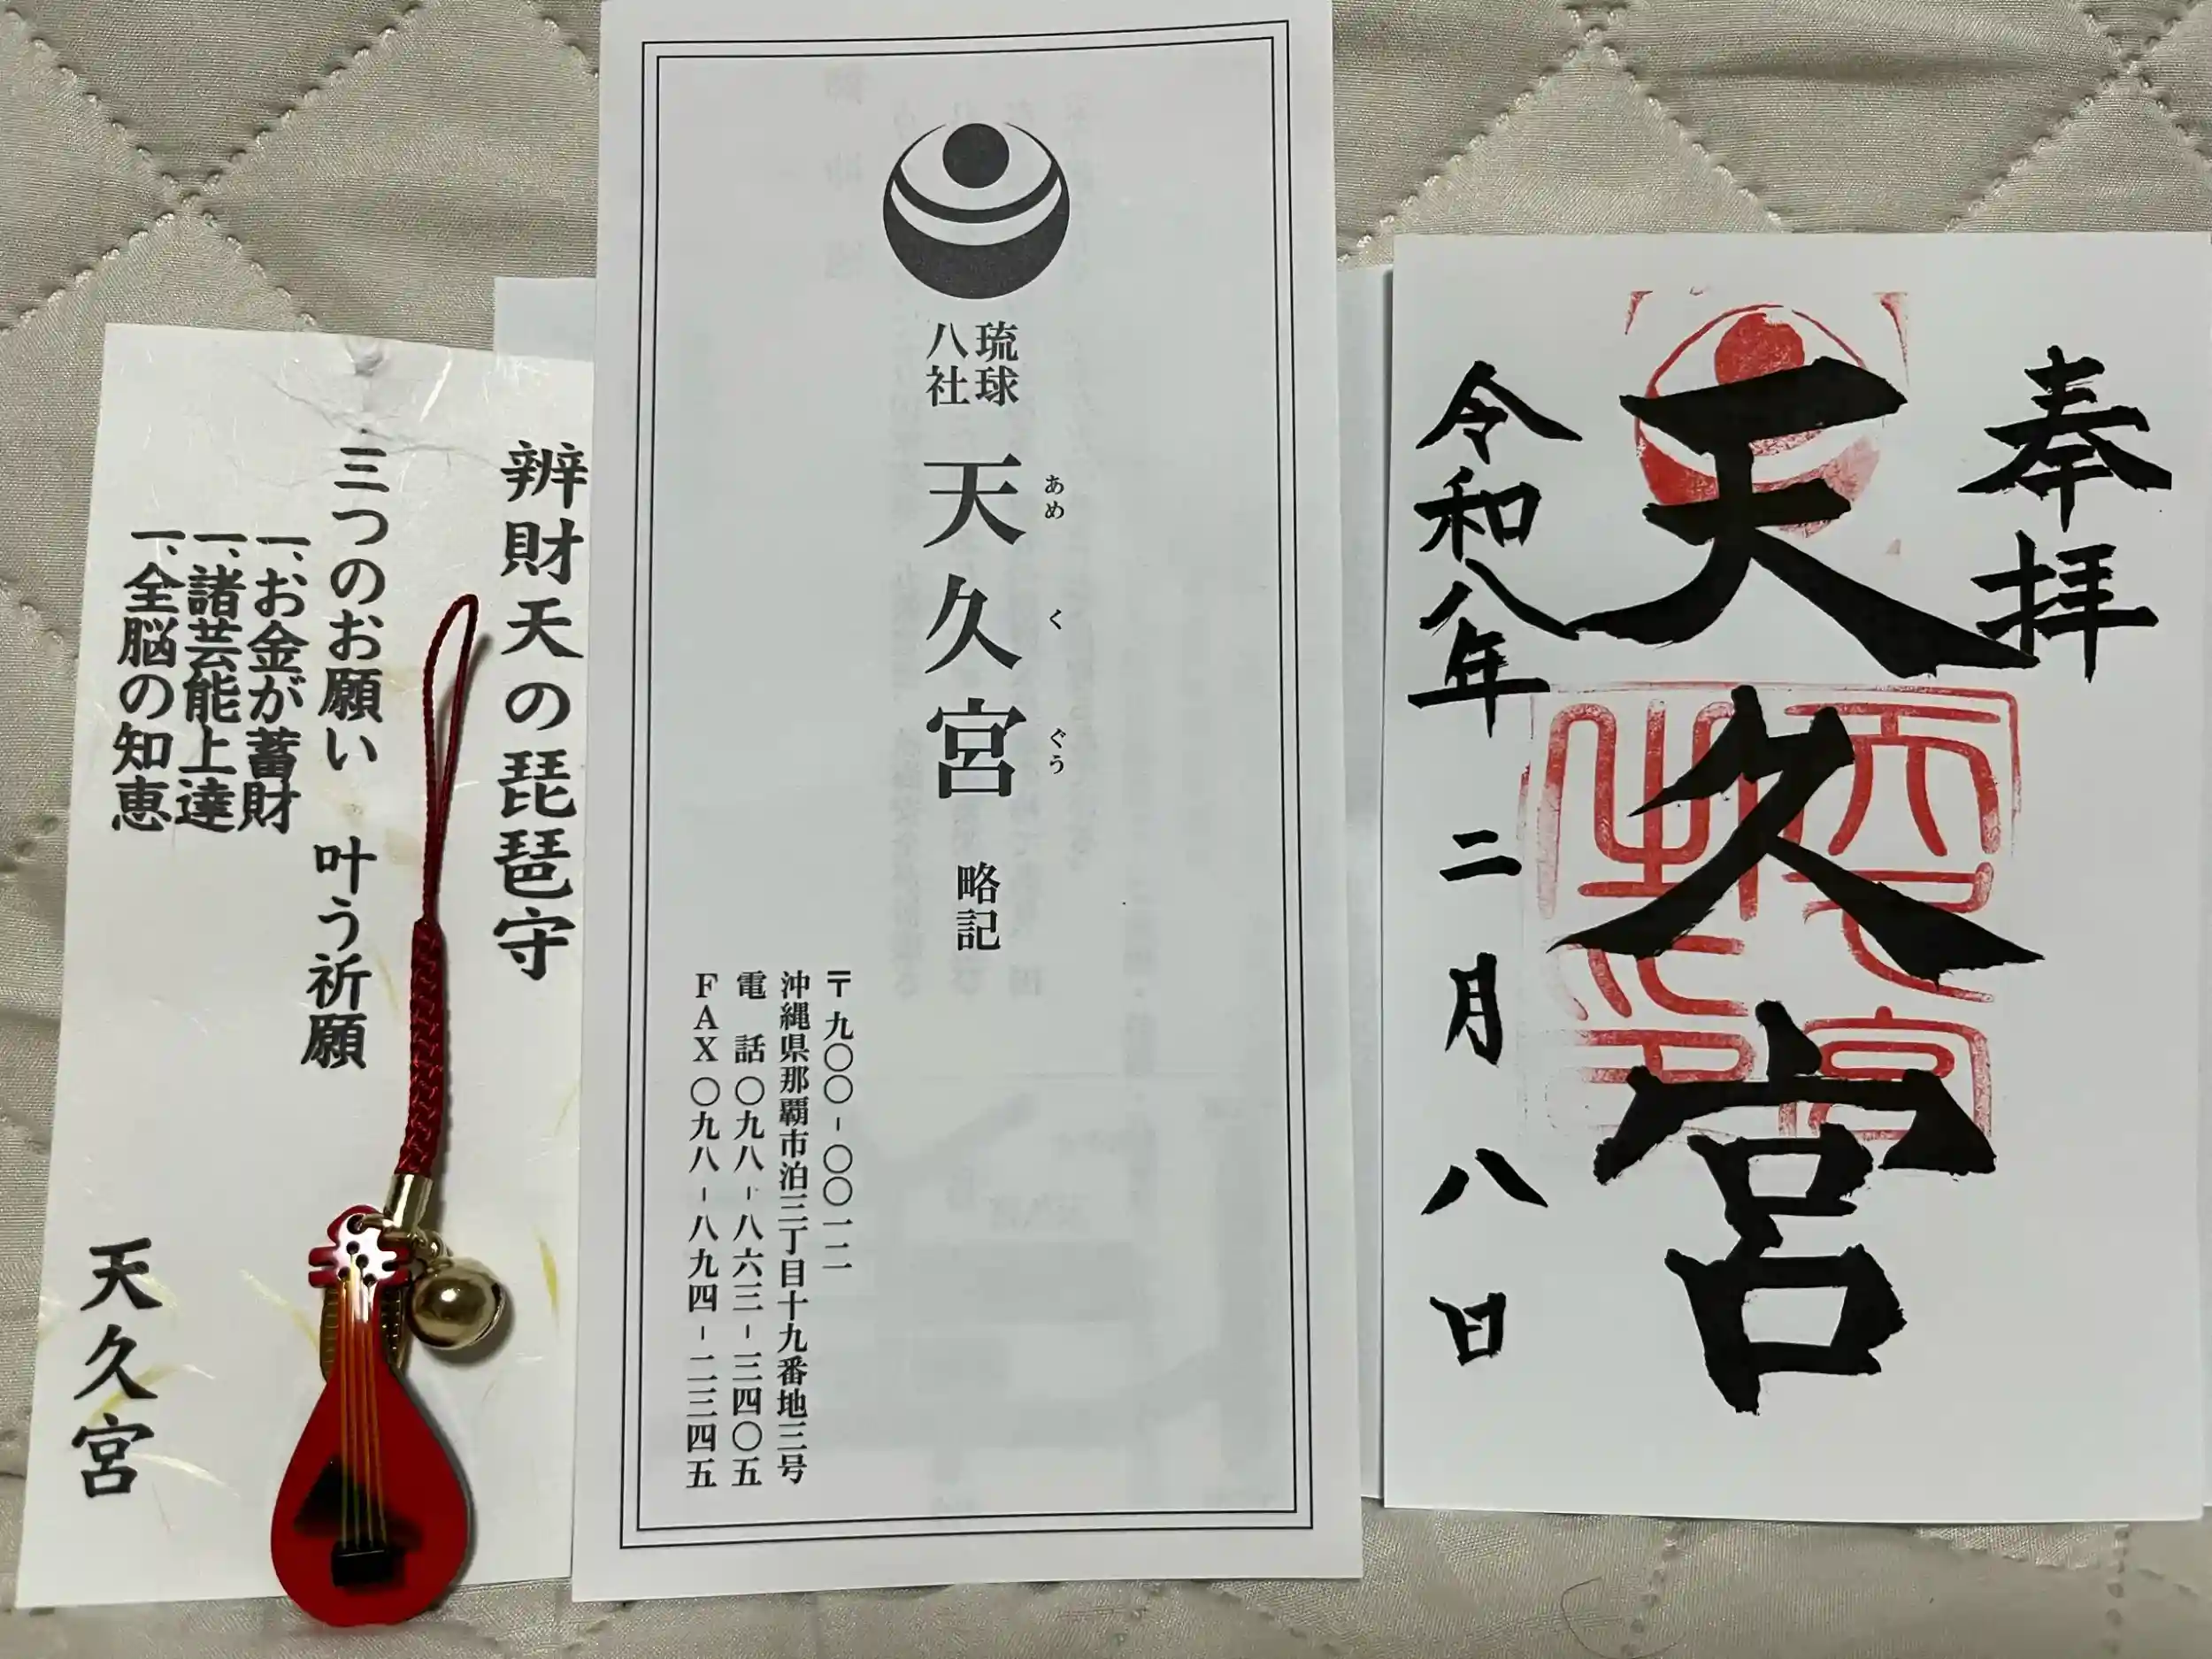 辨財天の琵琶守
三つのお願い 叶う祈願
一、お金が蓄財
一、諸芸能上達
一、全脳の知恵
天久宮
琉球
八社
天久宮
あめ
く
ぐう
略記
〒九〇〇-〇〇一二
沖縄県那覇市泊三丁目十九番地三号
電 話 〇九八-八六三-三四〇五
FAX 〇九八-八九四-二三四五
奉拝
天久宮
令和八年 二月八日